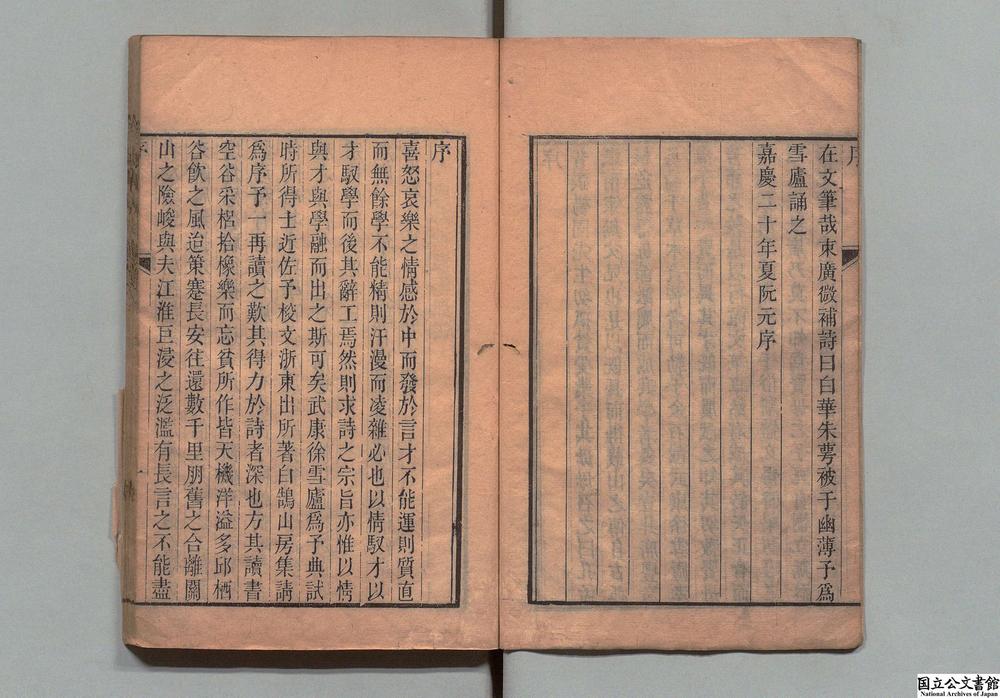 在文筆哉束廣微補詩曰白華朱萼被于幽薄予爲
雪廬誦之
嘉慶二十年夏阮元序
序
喜怒哀樂之情感於中而發於言才不能運則質直
而無餘學不能精則汗漫而凌雜必也以情馭才以
才馭學而後其辭工焉然則求詩之宗旨亦惟以情
與才與學融而出之斯可矣武康徐雪廬爲予典試
時所得士近佐予校文浙東出所著白鵠山房集請
爲序予一再讀之歎其得力於詩者深也方其讀書
空谷采梠拾橡樂而忘貧所作皆天機洋溢多邱栖
谷飲之風迨策蹇長安往還數千里朋舊之合離關
山之險峻與夫江淮巨浸之泛濫有長言之不能盡
序
一
国立公文書館
National Archives of Japan